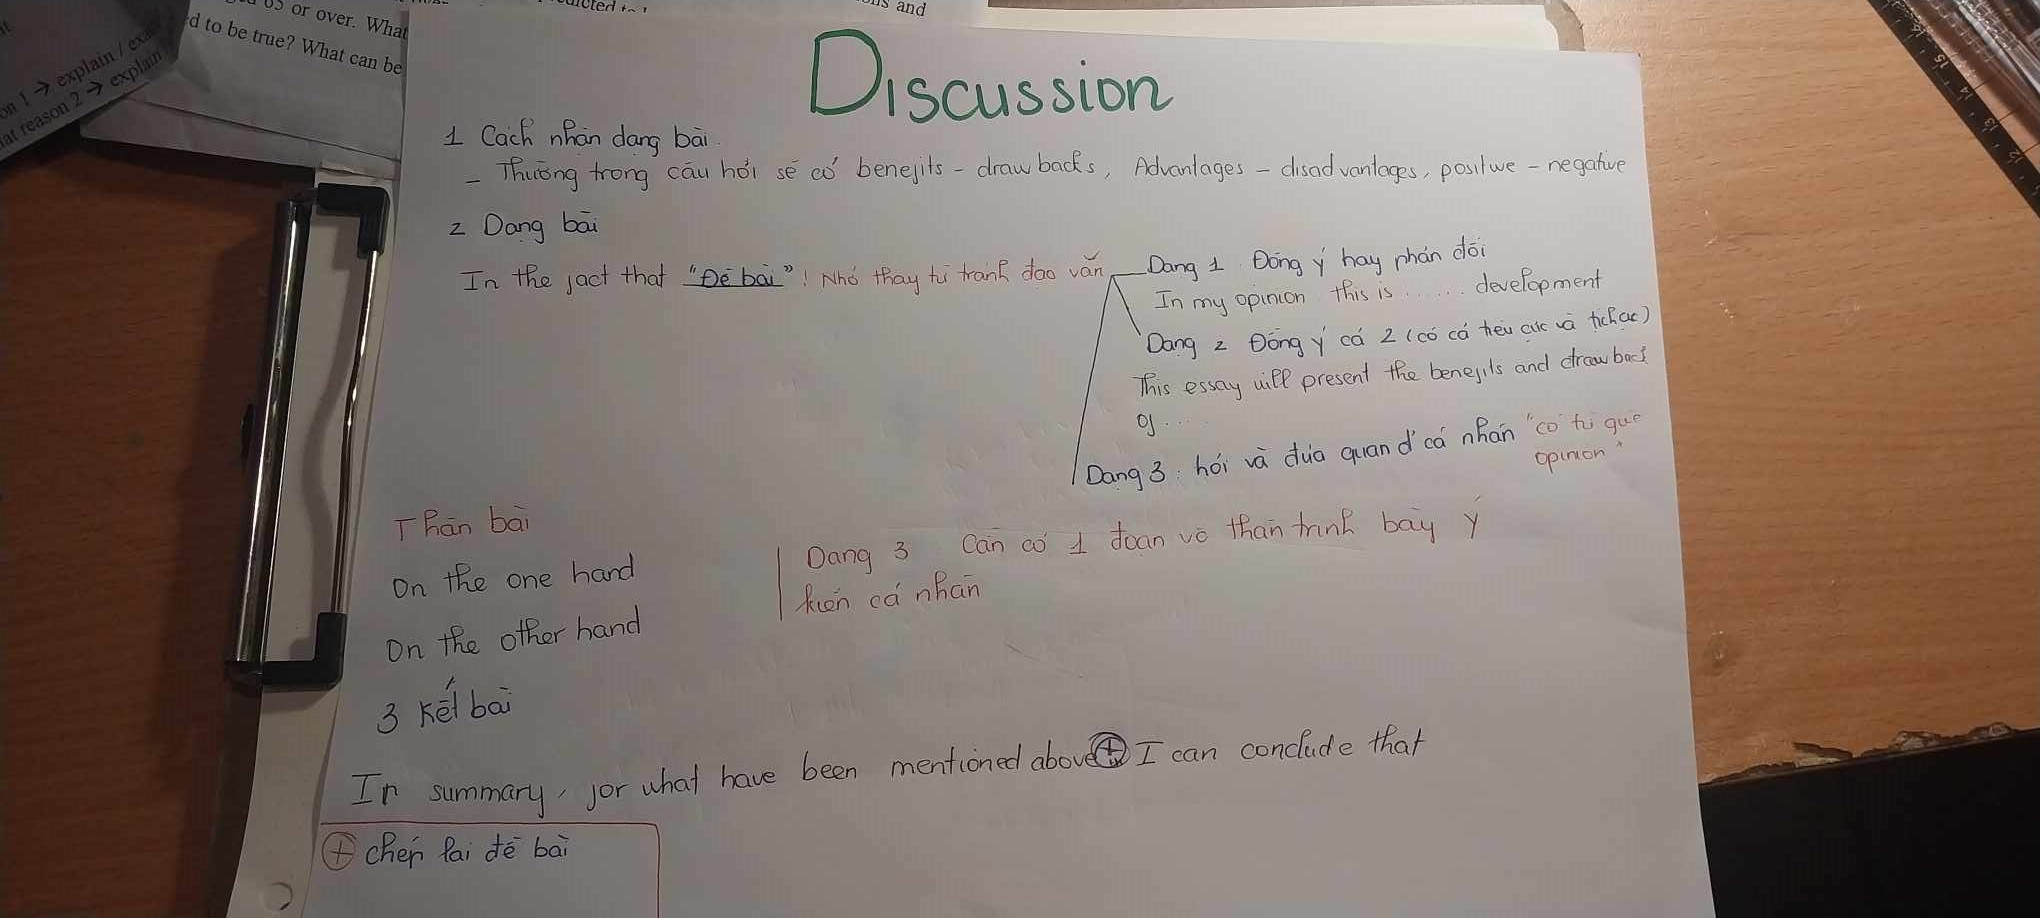 65 or over. What
d to be true? What can be
on 1 → explain / exa
at reason 2 → explain
s and
Discussion
1 Cách nhân dạng bài
- Thường trong câu hỏi sẽ có benejits - drawbacks, Advantages - disadvantages, positive - negative
2 Dạng bài
In the jact that "Đề bài" ! Nhớ thay từ tránh đạo văn
Dạng 1 Đồng ý hay phản đối
In my opinion this is ...... development
Dạng 2 Đồng ý cả 2 (có cả tiêu cực và tích cực)
This essay will present the benejits and drawback
oj ....
Dạng 3 : hỏi và đưa quan đ' cá nhân "có từ
opinion"
Thân bài
On the one hand
On the other hand
Dạng 3 Cần có 1 đoạn về thân trình bày ý
kiến cá nhân
3 Kết bài
In summary, jor what have been mentioned above ⊕ I can conclude that
⊕ chép lại đề bài